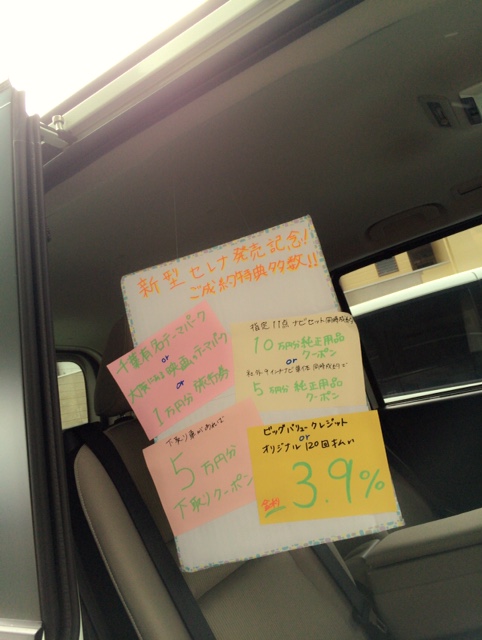 新型 セレナ 発売記念!
ご成約特典多数!!
千葉有名テーマパーク
or
大阪にある映画のテーマパーク
or
1万円分 旅行券
指定11点 ナビセット同時成約で
10万円分純正用品
クーポン
or
5万円分 純正用品
クーポン
下取り車があれば
5万円分
下取りクーポン
ビッグバリュークレジット
or
オリジナル120回払い
金利 3.9%